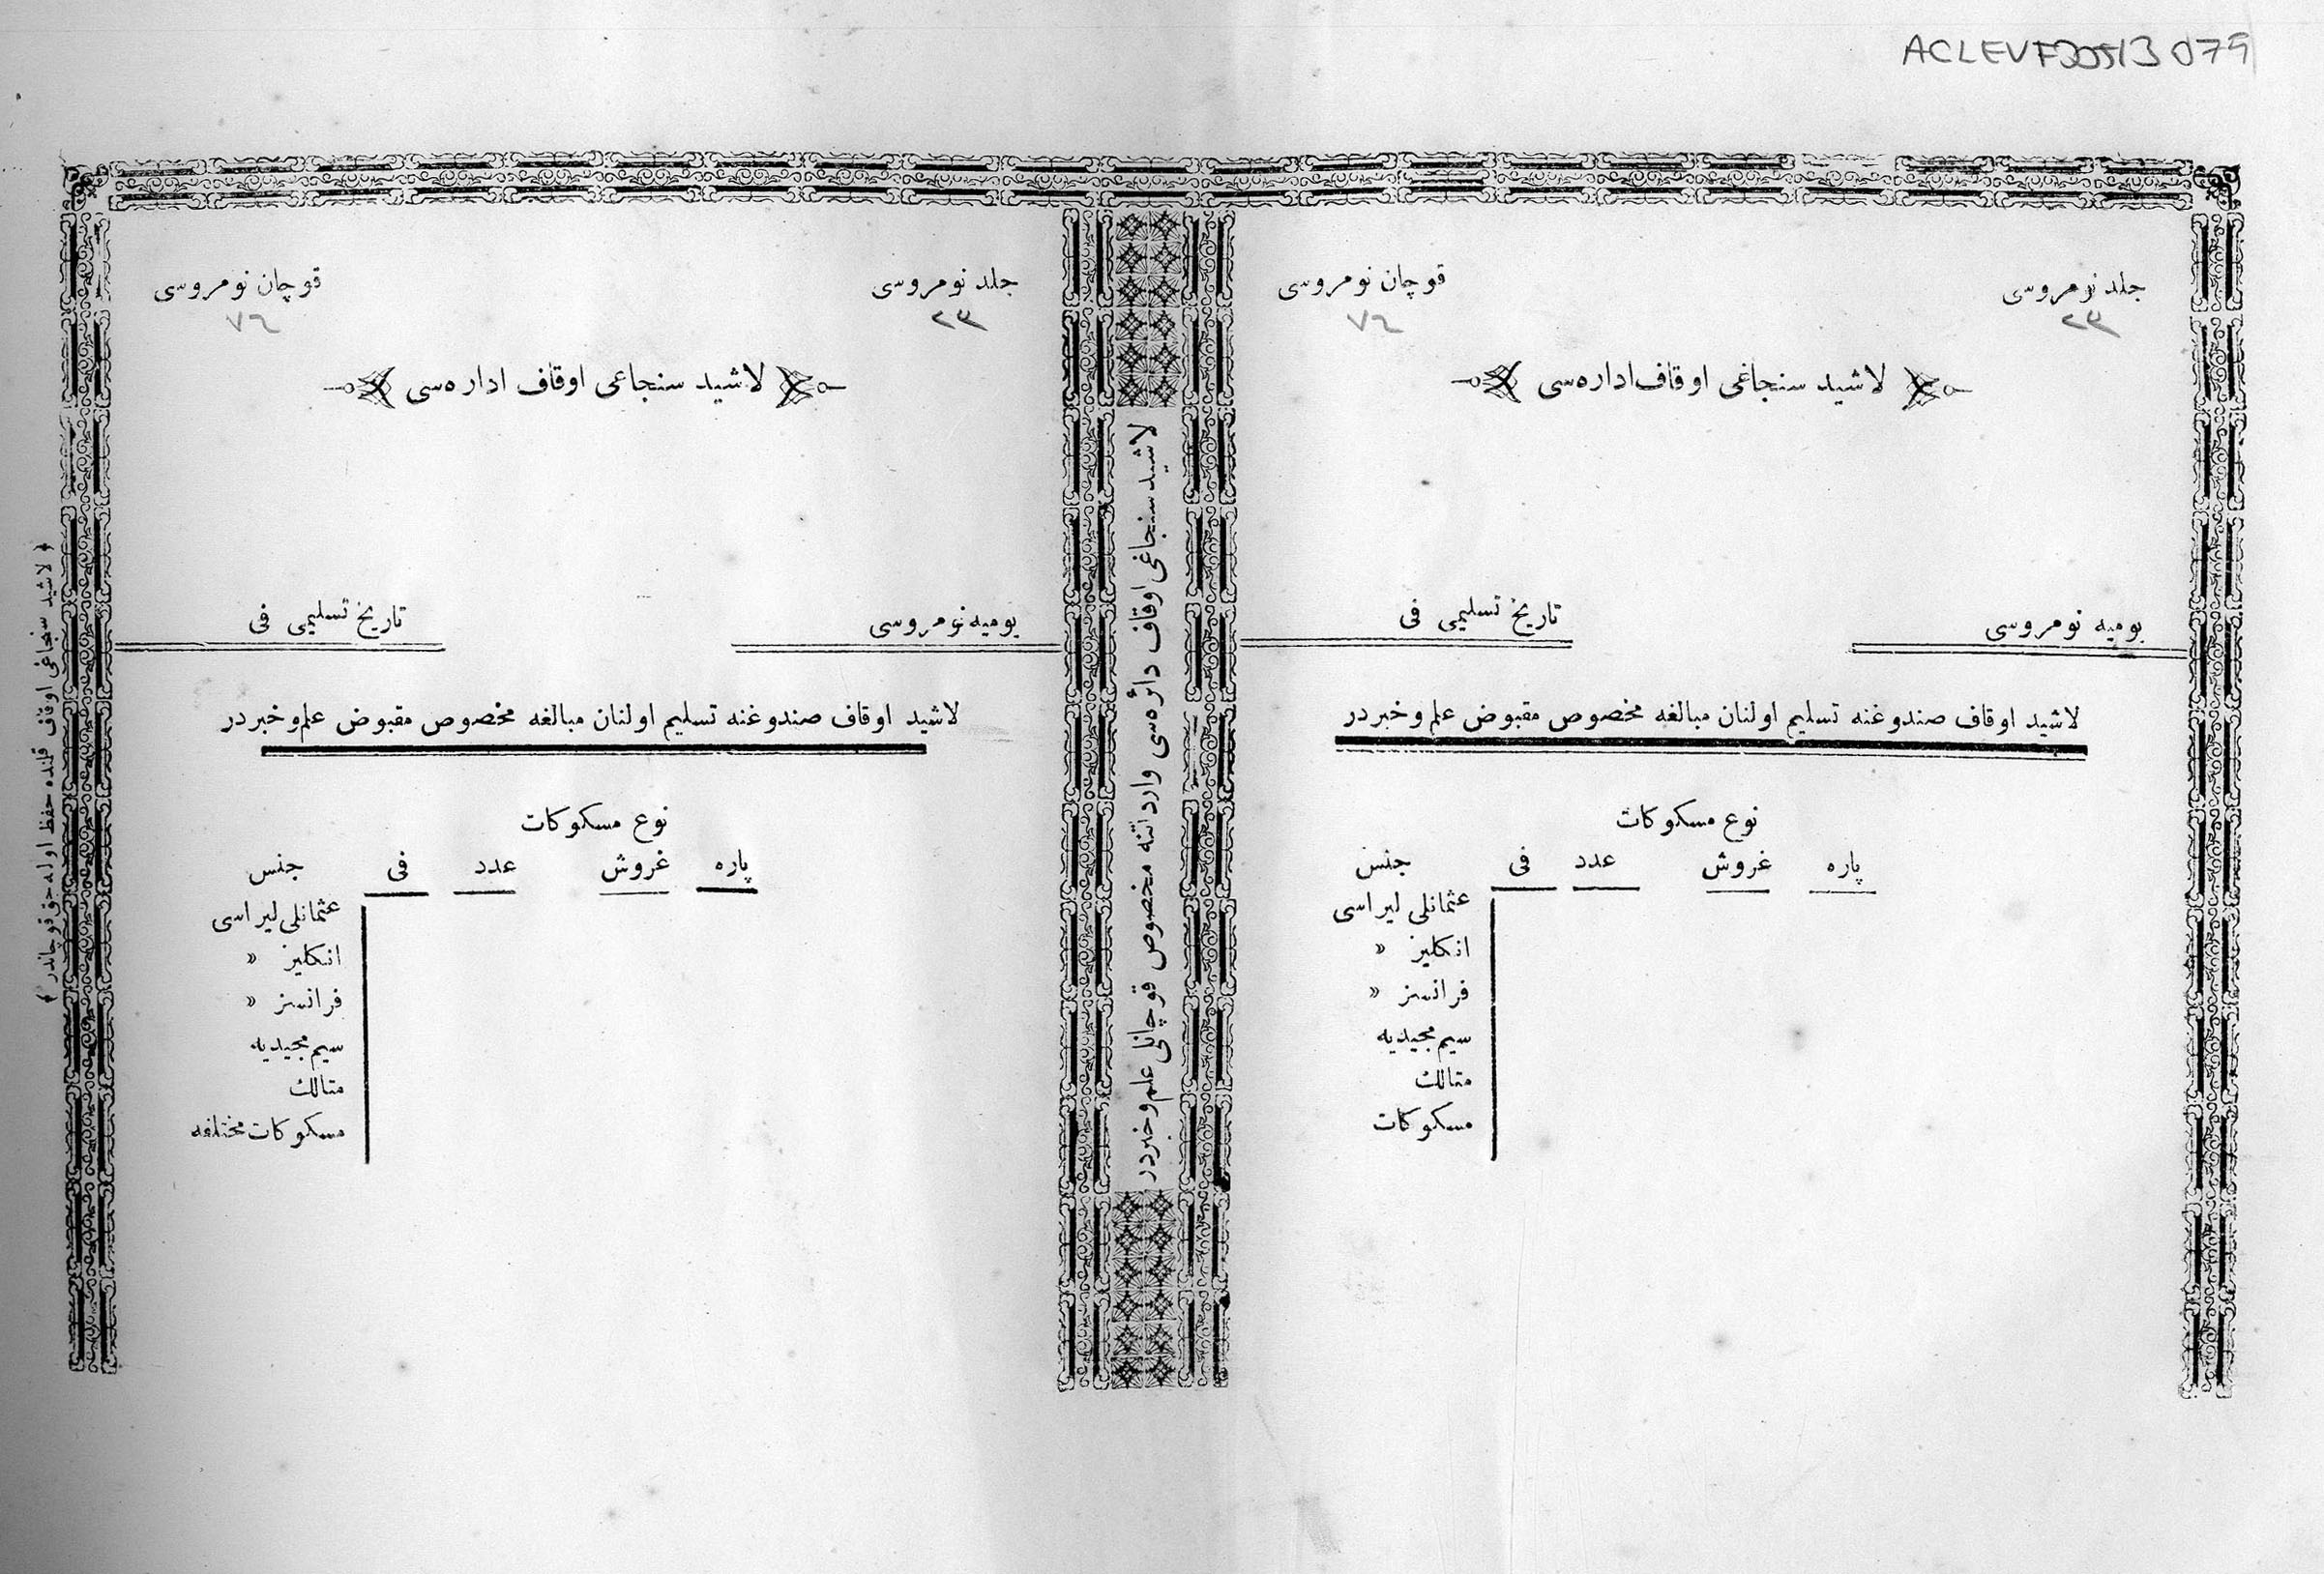 ACLEVF20513 079
جلد نومروسی
٢٣
قوچان نومروسی
٧٦
لاشيد سنجاغی اوقاف اداره‌سی
يوميه نومروسی
تاريخ تسليمی فی
لاشيد اوقاف صندوغنه تسليم اولنان مبالغه مخصوص مقبوض علم و خبردر
نوع مسكوكات
پاره غروش عدد فی جنس
عثمانلی ليراسی
انكليز »
فرانسز »
سيم مجيديه
متالك
مسكوكات
لاشيد سنجاغی اوقاف دائره‌سی وارداتنه مخصوص قوچانلی علم و خبردر
جلد نومروسی
٢٣
قوچان نومروسی
٧٦
لاشيد سنجاغی اوقاف اداره‌سی
يوميه نومروسی
تاريخ تسليمی فی
لاشيد اوقاف صندوغنه تسليم اولنان مبالغه مخصوص مقبوض علم و خبردر
نوع مسكوكات
پاره غروش عدد فی جنس
عثمانلی ليراسی
انكليز »
فرانسز »
سيم مجيديه
متالك
مسكوكات مختلفه
﴿ لاشيد سنجاغی اوقاف قلمنده حفظ اوله‌جق قوچاندر ﴾